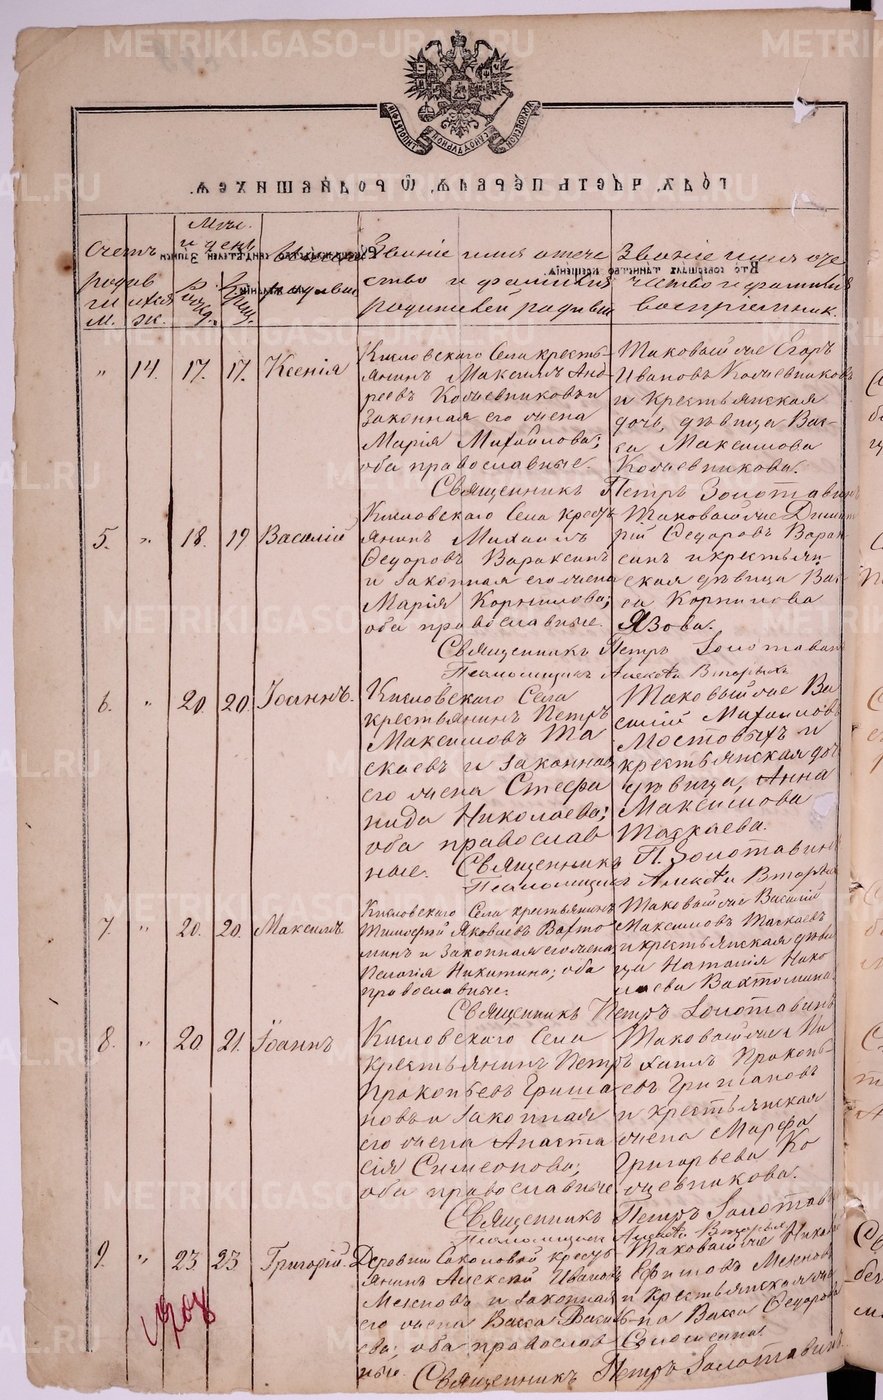 METRIKI.GASO-URAL.RU
годъ, часть первая, о родившихся.
Счетъ
родив
шихся
м. ж.
Мѣс.
и день
рожд.
крещ.
Имена
родивш
Званіе имя отече
ство и фамилія
родителей родивш
Званіе имя оте
чество и фамилія
воспріемник.
Кто совершалъ таинство крещенія
" 14. 17. 17. Ксенія
Кисловскаго Села кресть-
янинъ Максимъ Анд-
реевъ Кожевниковъ и
законная его жена
Марія Михайлова;
оба православные.
Таковый же Егоръ
Ивановъ Кожевниковъ
и крестьянская
дочь, дѣвица Вас-
са Максимова
Кожевникова.
Священникъ Петръ Золотавинъ
5. " 18. 19 Василій
Кисловскаго Села крест
янинъ Михаилъ
Ѳедоровъ Вараксинъ
и законная его жена
Марія Корнилова;
оба православные.
Таковый же Димит
рій Ѳедоровъ Варак
синъ и крестьян
ская дѣвица Вас
са Корнилова
Язова.
Священникъ Петръ Золотавинъ
Псаломщикъ Алексѣй Вторыхъ
6. " 20. 20. Іоаннъ.
Кисловскаго Села
крестьянинъ Петръ
Максимовъ Та
скаевъ и законная
его жена Стефа
нида Николаева;
оба православ
ные.
Таковый же Ва
силій Михаиловъ
Мостовыхъ и
крестьянская доч
дѣвица, Анна
Максимова
Таскаева.
Священникъ П. Золотавинъ
Псаломщикъ Алексѣй Вторыхъ
7. " 20. 20. Максимъ
Кисловскаго Села крестьянинъ
Тимофей Яковлевъ Вахто
минъ и законная его жена
Пелагія Никитина; оба
православные.
Таковый же Василій
Максимовъ Таскаевъ
и крестьянская дѣви
ца Наталія Нико
лаева Вахтомина.
Священникъ Петръ Золотавинъ
8. " 20 21. Іоаннъ
Кисловскаго Села
крестьянинъ Петръ
Прокопьевъ Гриша
новъ и законная
его жена Анаста
сія Симеонова;
оба православные
Таковый же Ми
хаилъ Прокопь-
евъ Гришановъ
и крестьянская
жена Марфа
Григорьева Ко
жевникова.
Священникъ Петръ Золотавинъ
Псаломщикъ Алексѣй Вторыхъ
9. " 23 23 Григорій.
Деревни Соколовой крест
янинъ Алексѣй Ивановъ
Мезеновъ и законная
его жена Васса Васил
ева; оба православ
ные.
Таковый же
Мезеновъ
и крестьянская
Васса Ѳедорова
Священникъ Петръ Золотавинъ